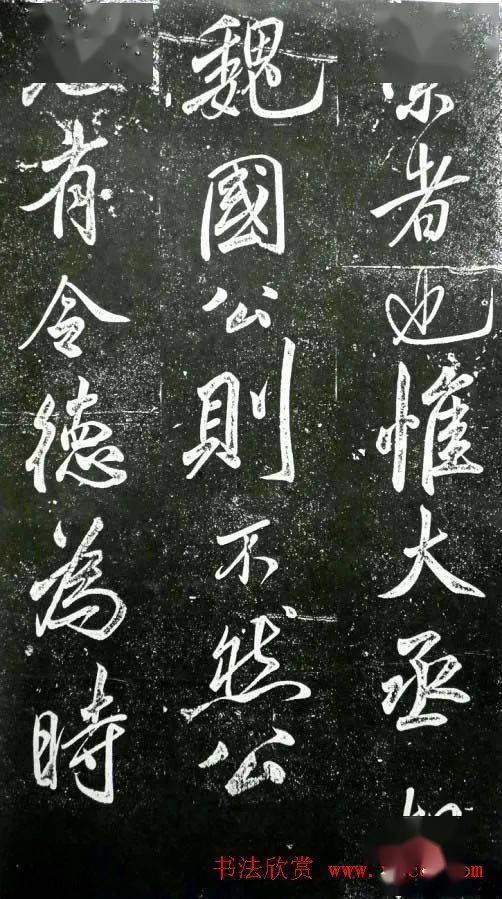 者也惟大丞
魏國公則不然公
有令德為時
书法欣赏 www.